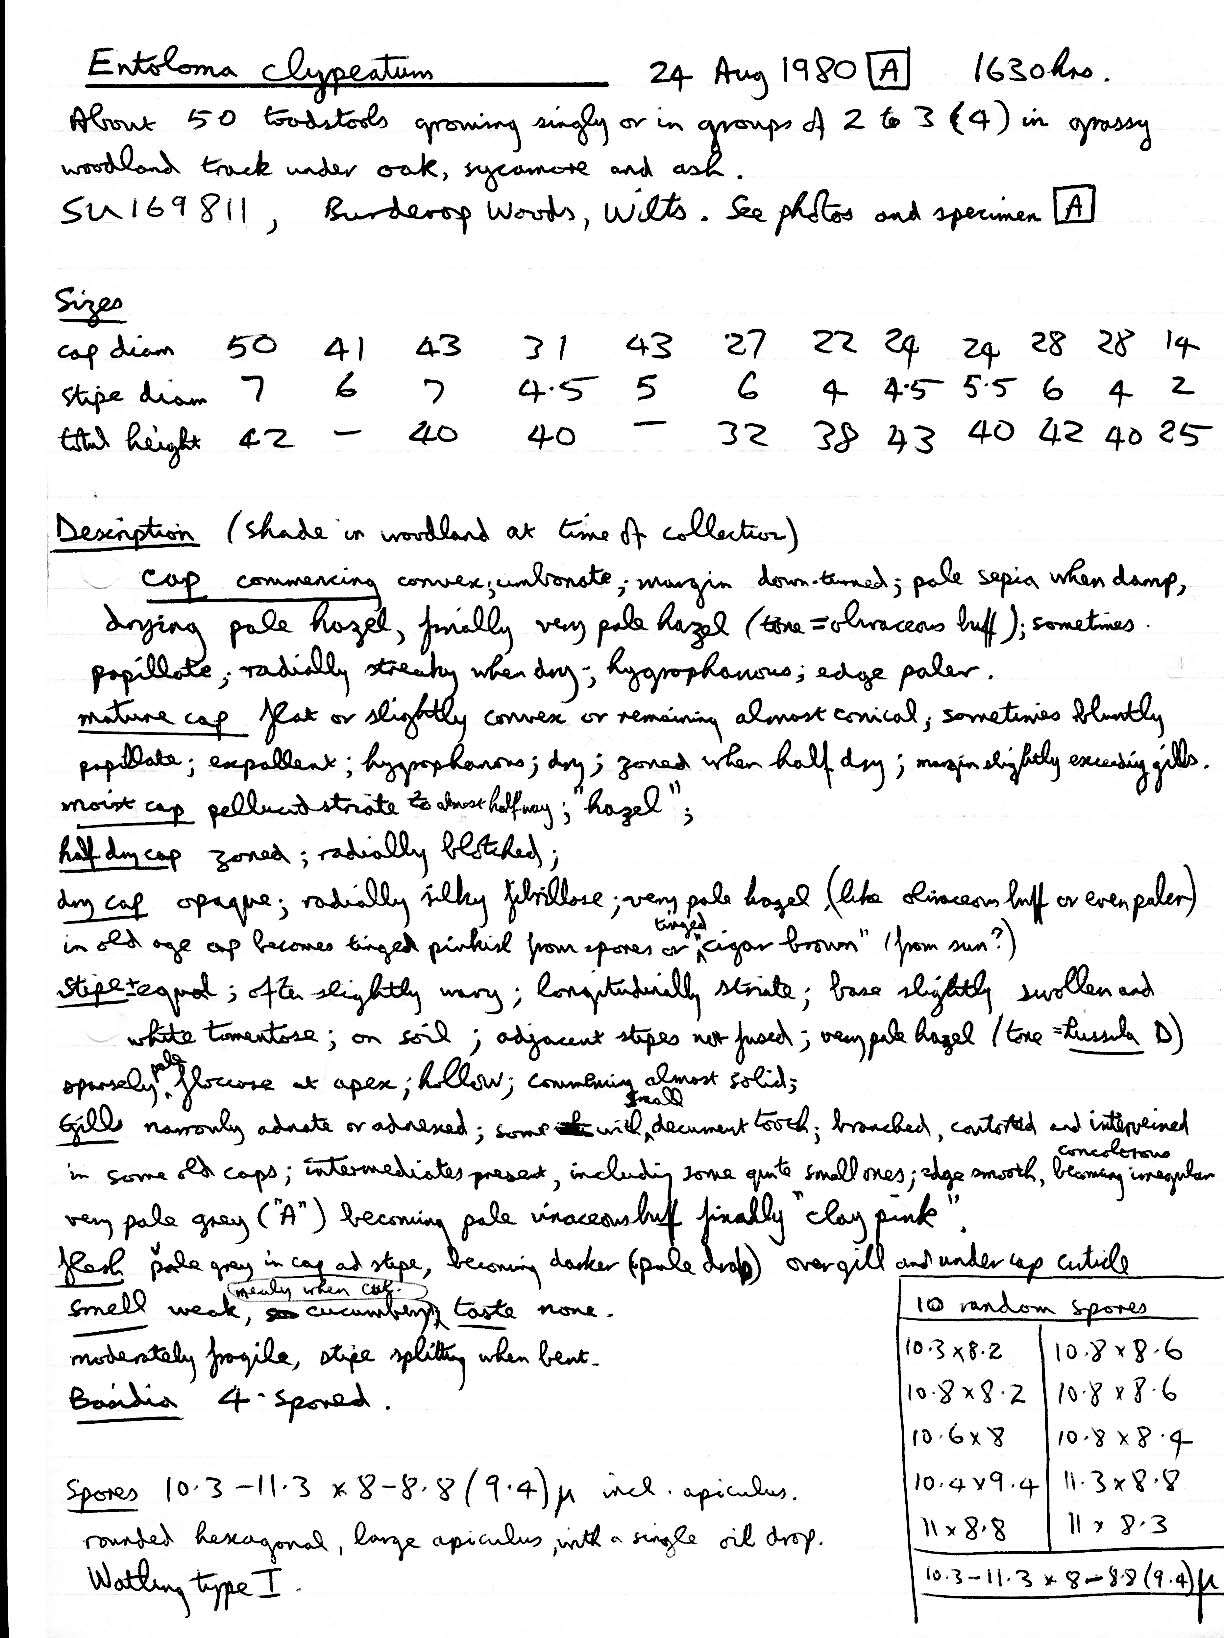 Entoloma clypeatum 24 Aug 1980 A 1630hrs.
About 50 toadstools growing singly or in groups of 2 to 3 (4) in grassy
woodland track under oak, sycamore and ash.
SU169811, Burderop Woods, Wilts. See photos and specimen A
Sizes
cap diam 50 41 43 31 43 27 22 24 24 28 28 14
stipe diam 7 6 7 4.5 5 6 4 4.5 5.5 6 4 2
total height 42 – 40 40 – 32 38 43 40 42 40 25
Description (shade in woodland at time of collection)
cap commencing convex; umbonate; margin down-turned; pale sepia when damp,
drying pale hazel, finally very pale hazel (tone = olivaceous buff); sometimes
papillate; radially streaky when dry; hygrophanous; edge paler.
mature cap flat or slightly convex or remaining almost conical; sometimes bluntly
papillate; expallent; hygrophanous; dry; zoned when half dry; margin slightly exceeding gills.
moist cap pellucid striate to almost halfway; "hazel";
half dry cap zoned; radially blotched;
dry cap opaque; radially silky fibrillose; very pale hazel (like olivaceous buff or even paler)
in old age cap becomes tinged pinkish from spores or tinged "cigar brown" (from sun?)
Stipe ± equal; often slightly wavy; longitudinally striate; base slightly swollen and
white tomentose; on soil; adjacent stipes not fused; very pale hazel (tone = Russula D)
sparsely pale floccose at apex; hollow; commencing almost solid;
Gills narrowly adnate or adnexed; some with small decurrent tooth; branched, contorted and interveined
in some old caps; intermediates present, including some quite small ones; edge smooth, concolorous becoming irregular
very pale grey ("A") becoming pale vinaceous buff finally "clay pink".
flesh pale grey in cap and stipe, becoming darker (pale drab) over gill and under cap cuticle
smell weak, cucumbery, mealy when cut. taste none.
moderately fragile, stipe splitting when bent.
Basidia 4-spored.
Spores 10.3–11.3 x 8–8.8 (9.4) µ incl. apiculus.
rounded hexagonal, large apiculus, with a single oil drop.
Watling type I.
10 random spores
10.3 x 8.2 10.8 x 8.6
10.8 x 8.2 10.8 x 8.6
10.6 x 8 10.8 x 8.4
10.4 x 9.4 11.3 x 8.8
11 x 8.8 11 x 8.3
10.3–11.3 x 8–8.8 (9.4) µ